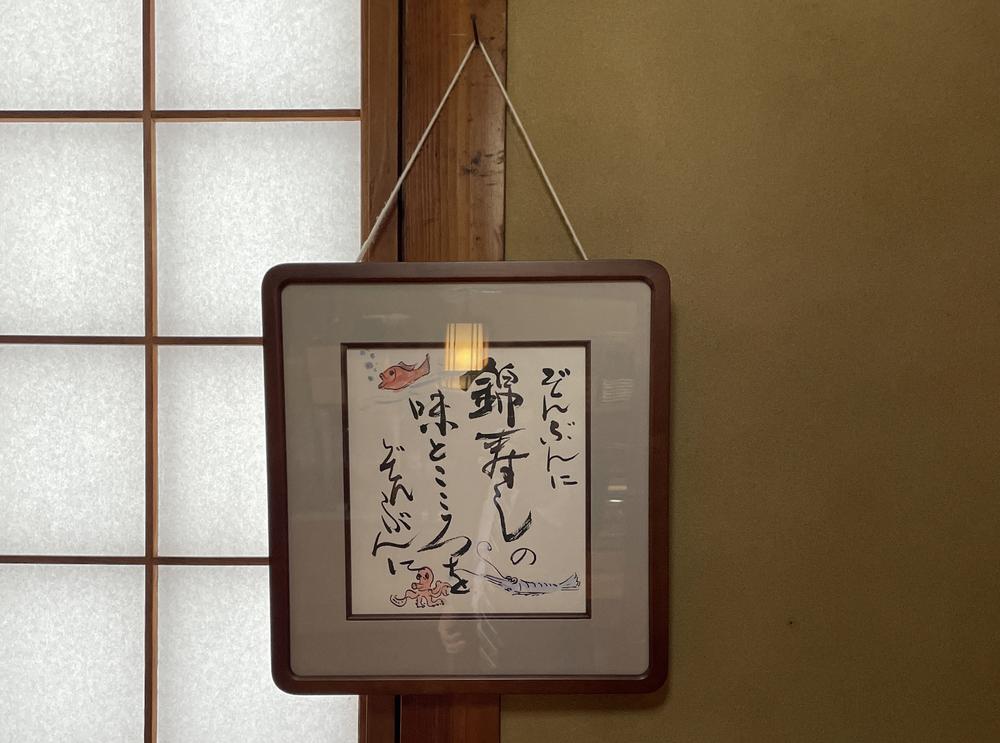 ぞんぶんに
錦寿しの
味とこころを
ぞんぶんに